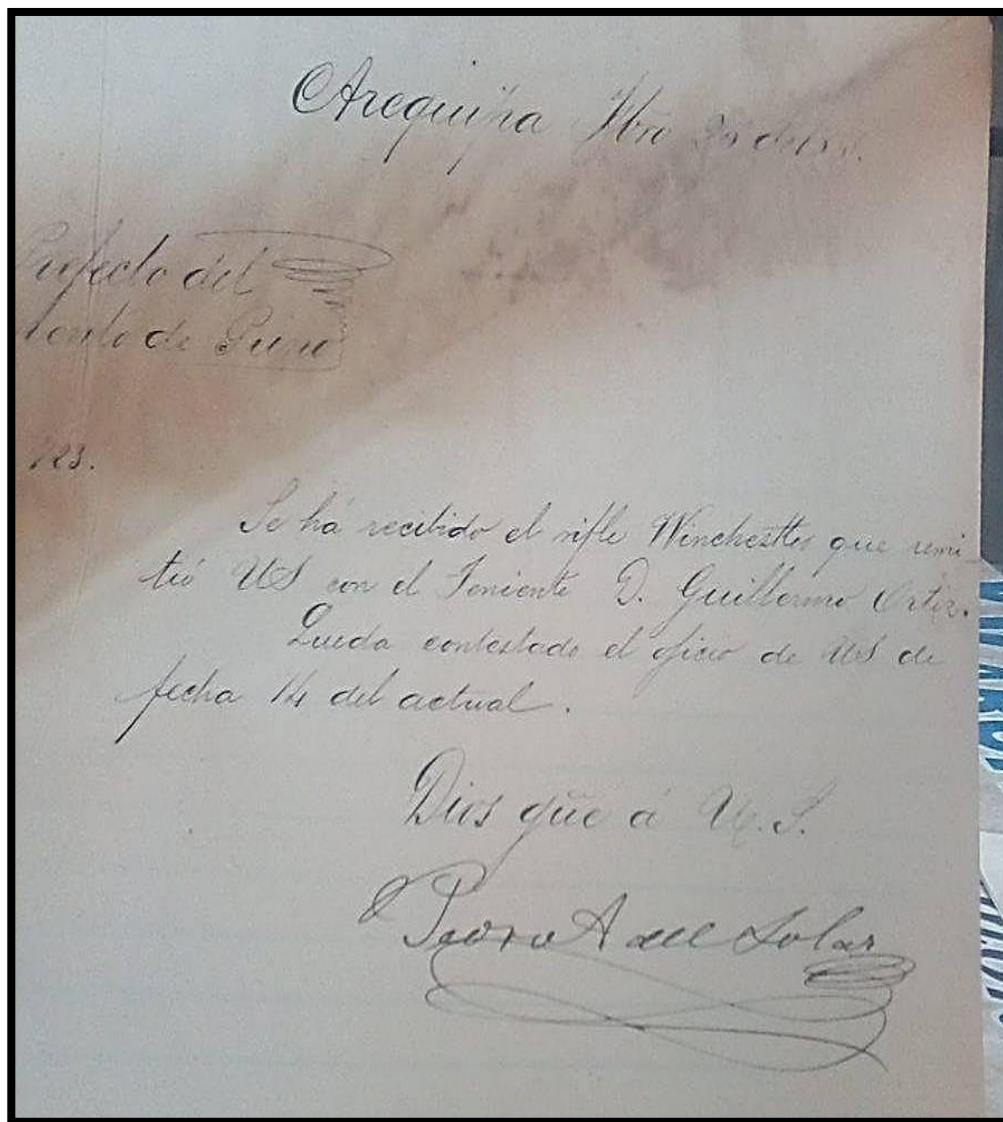 Arequipa
Prefecto del
de Puno
123.
Se há recibido el rifle Winchestter que remi
tió US con el Teniente D. Guillermo Ortiz.
Queda contestado el oficio de US de
fecha 14 del actual.
Dios güe á U.S.
Pedro A del Solar